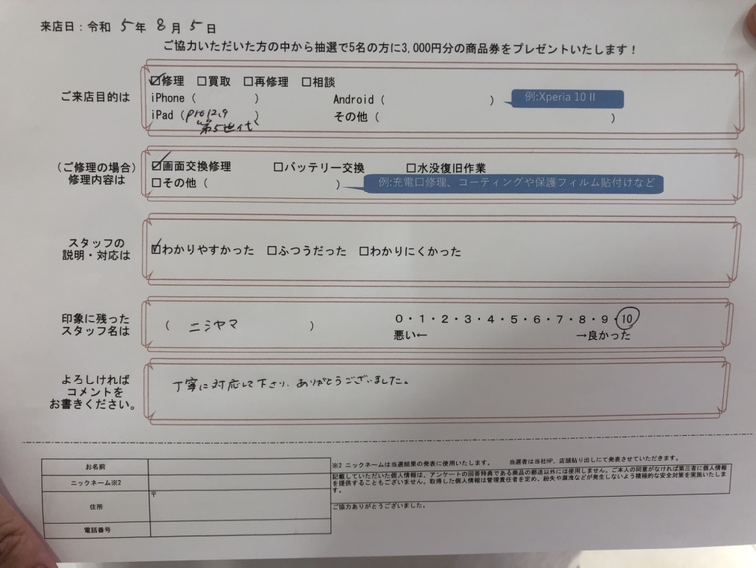 来店日：令和 5 年 8 月 5 日
ご協力いただいた方の中から抽選で5名の方に3,000円分の商品券をプレゼントいたします！
ご来店目的は
☑修理 □買取 □再修理 □相談
iPhone（ ） Android（ ） 例:Xperia 10 II
iPad（pro12.9 第5世代） その他（ ）
（ご修理の場合）
修理内容は
☑画面交換修理 □バッテリー交換 □水没復旧作業
□その他（ ） 例:充電口修理、コーティングや保護フィルム貼付けなど
スタッフの
説明・対応は
☑わかりやすかった □ふつうだった □わかりにくかった
印象に残った
スタッフ名は
（ ニシヤマ ）
0・1・2・3・4・5・6・7・8・9・10
悪い← →良かった
よろしければ
コメントを
お書きください。
丁寧に対応して下さり、ありがとうございました。
お名前
ニックネーム※2
住所
〒
電話番号
※2 ニックネームは当選結果の発表に使用いたします。 当選者は当社HP、店頭貼り出しにて発表させていただきます。
記載していただいた個人情報は、アンケートの回答特典である商品の郵送以外には使用しません。ご本人の同意がなければ第三者に個人情報
を提供することもございません。取得した個人情報は管理責任者を定め、紛失や漏洩などが発生しないよう積極的な安全対策を実施いたしま
す。
ご協力ありがとうございました。